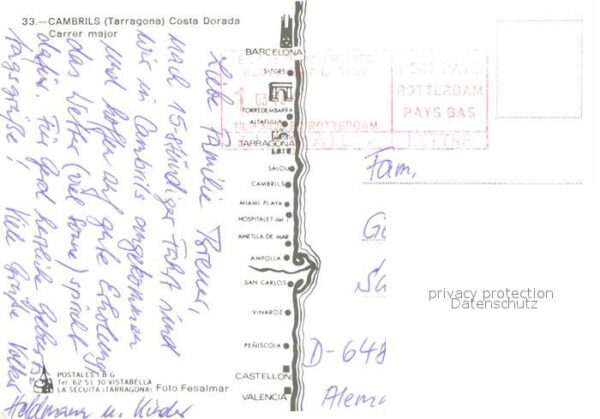 33.—CAMBRILS (Tarragona) Costa Dorada
Carrer major
Liebe Familie
nach 15-stündiger Fahrt sind
wir in Cambrils angekommen
und hoffen auf gute Erholung,
das Wetter (viel Sonne) spricht
dafür. Für Gerd herzliche Geburts-
tagsgrüße! Viele Grüße Volker
Feldmann u. Kinder
BARCELONA
SITGES
TORREDEMBARRA
ALTAFULLA
TARRAGONA
SALOU
CAMBRILS
MIAMI PLAYA
HOSPITALET del I.
AMETLLA DE MAR
AMPOLLA
SAN CARLOS
VINAROZ
PEÑISCOLA
CASTELLON
VALENCIA
PORT PAYE
ROTTERDAM
PAYS BAS
ROTTERDAM
Fam.
D-648
Alema
privacy protection
Datenschutz
POSTALES I B G
Tel 62 51 30 VISTABELLA
LA SECUITA (TARRAGONA) Foto Fesalmar